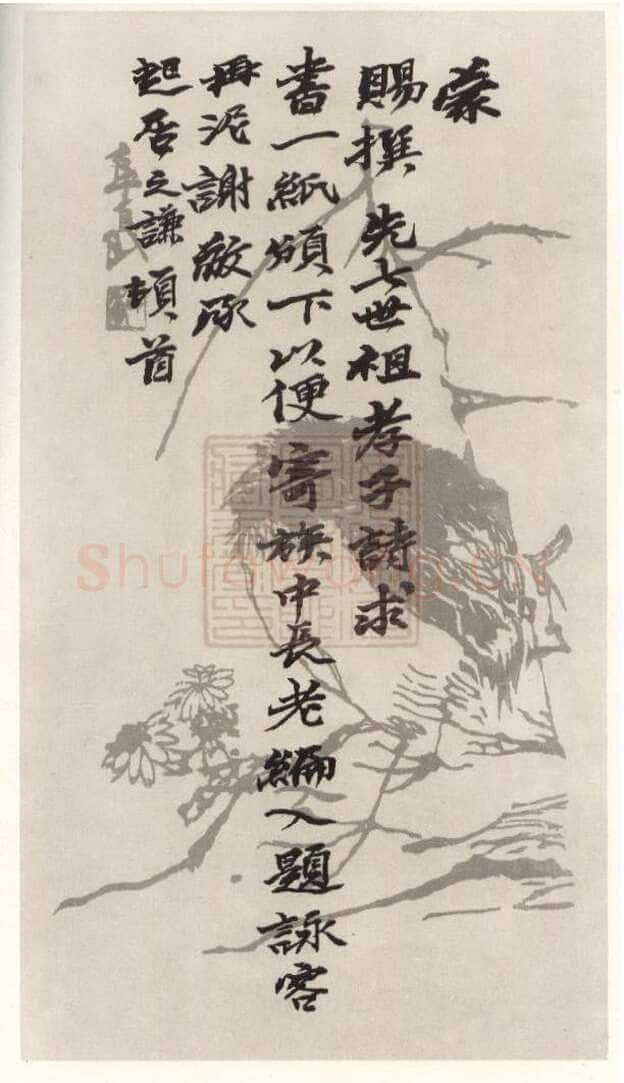 蒙
賜撰 先七世祖孝子詩求
書一紙頒下以便寄族中長老編入題詠容
再泥謝敬承
起居之謙頓首
Shufawang.cn